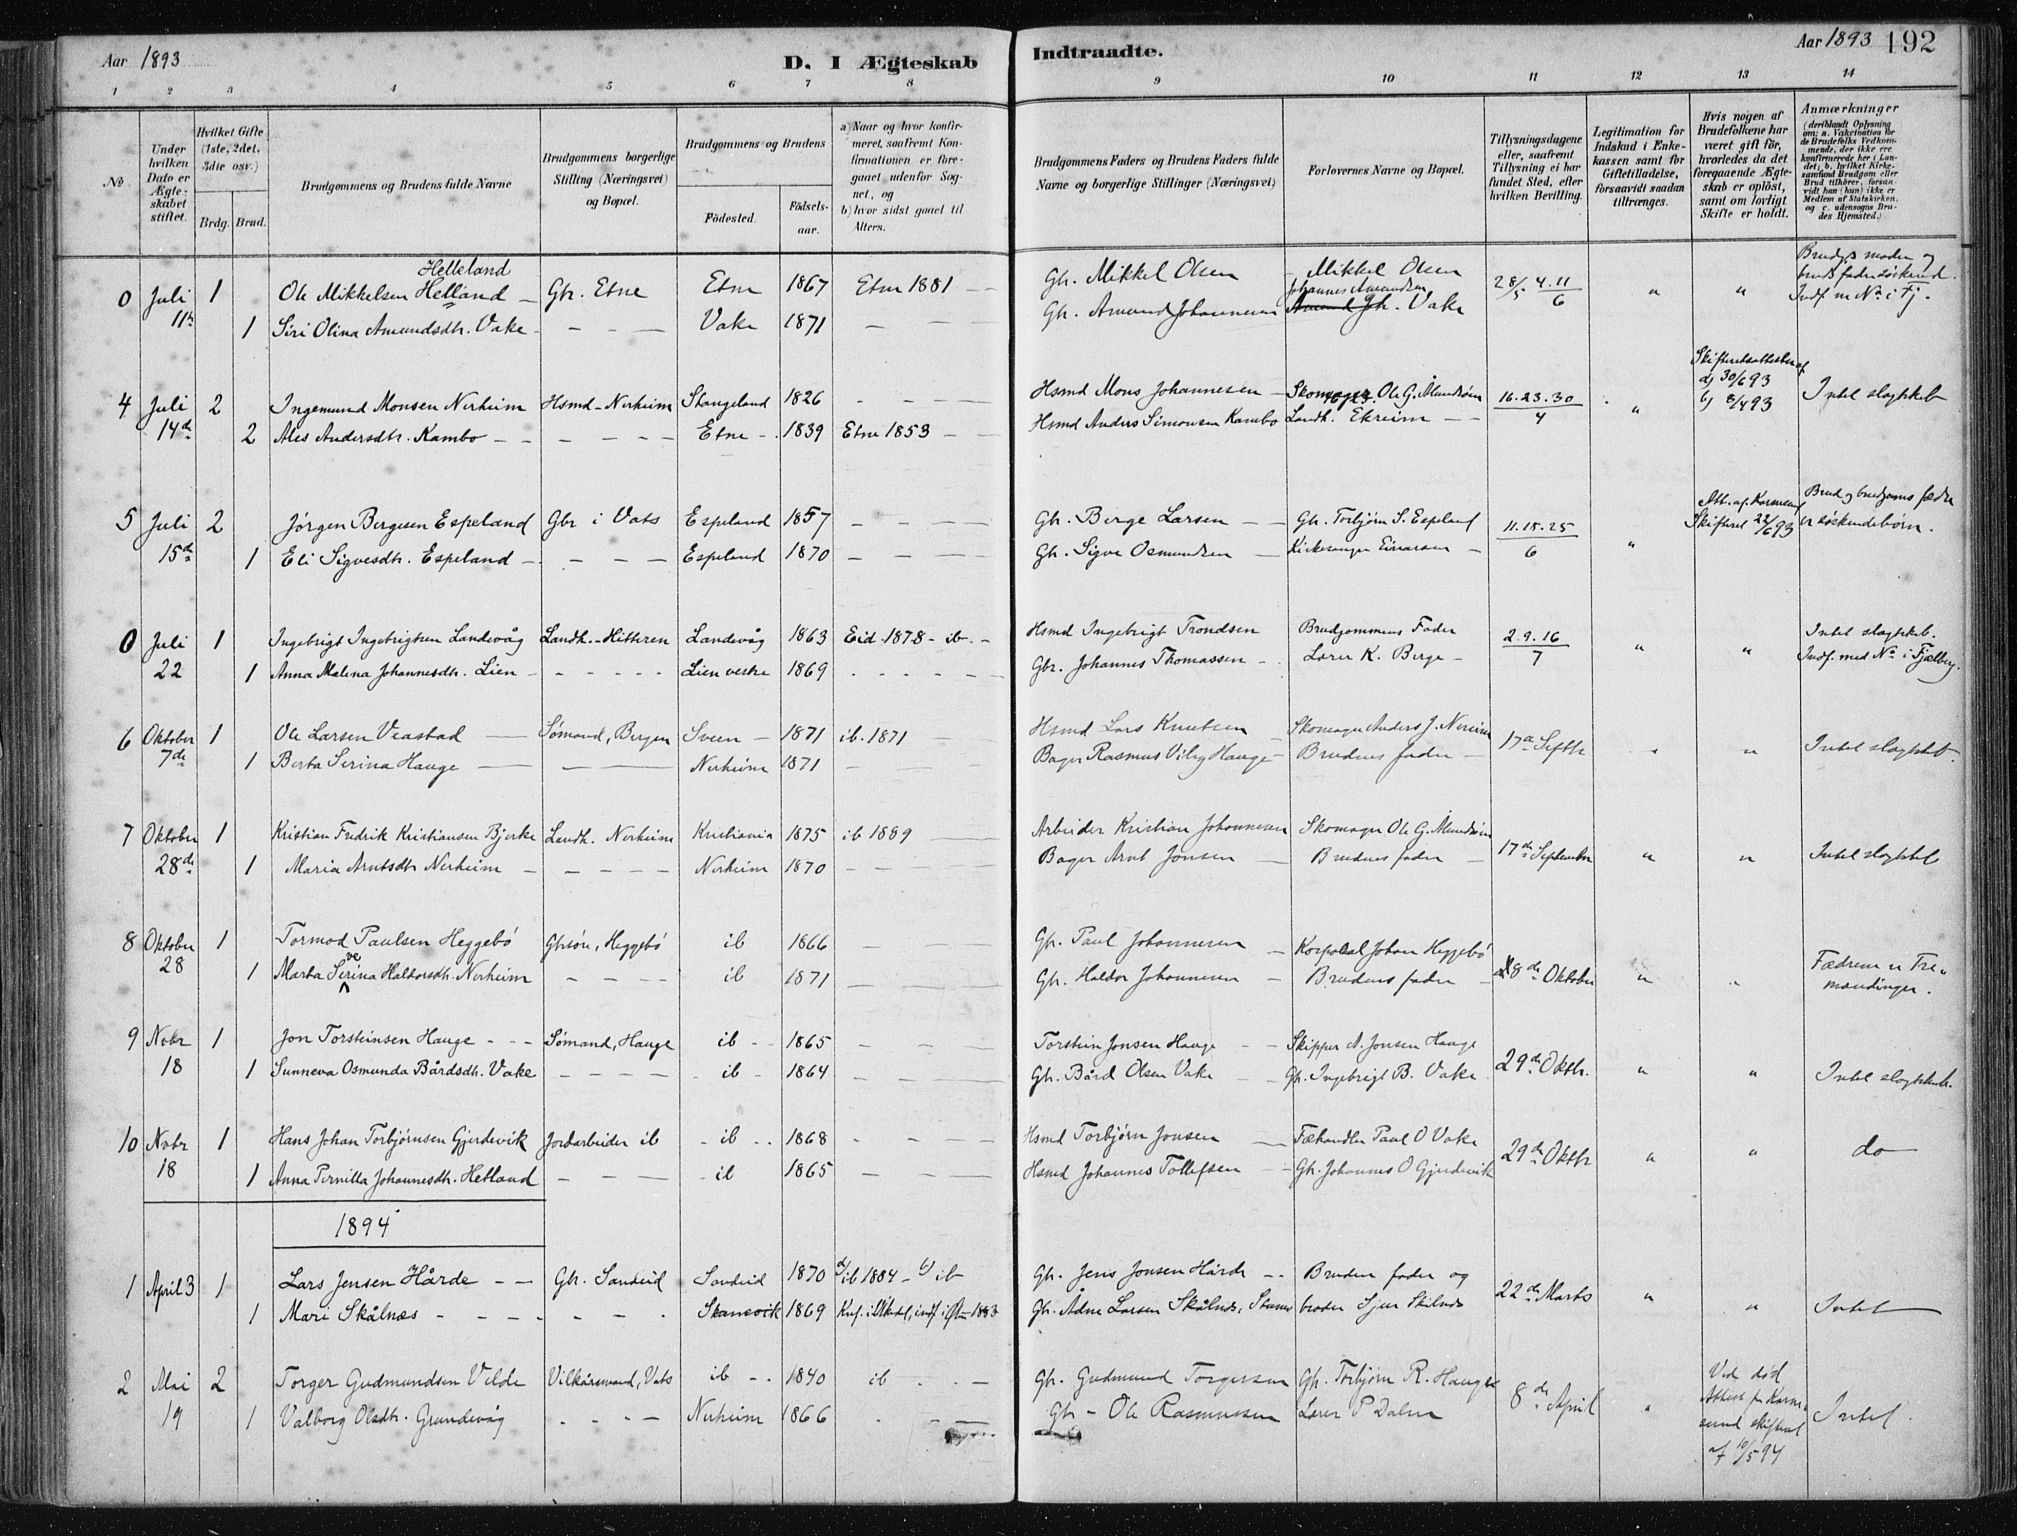 Aar 1893
D. I Ægteskab Indtraadte.
Aar 1893 192
1 2 3 4 5 6 7 8 9 10 11 12 13 14
No
Under hvilken Dato er Ægteskabet stiftet.
Hvilket Gifte (1ste, 2det, 3die osv.)
Brdg. Brud.
Brudgommens og Brudens fulde Navne
Brudgommens borgerlige Stilling (Næringsvei) og Bopæl.
Brudgommens og Brudens
Födested. Födselsaar.
a) Naar og hvor konfirmeret, saafremt Konfirmationen er foregaaet udenfor Sognet, og
b) hvor sidst gaaet til Alters.
Brudgommens Faders og Brudens Faders fulde Navne og borgerlige Stillinger (Næringsvei)
Forlovernes Navne og Bopæl.
Tillysningsdagene eller, saafremt Tillysning ei har fundet Sted, efter hvilken Bevilling.
Legitimation for Indskud i Enkekassen samt for Giftetilladelse, forsaavidt saadan tiltrænges.
Hvis nogen af Brudefolkene har været gift för, hvorledes da det foregaaende Ægteskab er oplöst, samt om lovligt Skifte er holdt.
Anmærkninger (deriblandt Oplysning om: a. Vakcination for de Brudefolks Vedkommende, der ikke ere konfirmerede her i Landet; b. hvilket Kirkesamfund Brudgom eller Brud tilhörer, forsaavidt han (hun) ikke er Medlem af Statskirken, og c. udensogns Brudes Hjemsted.)
Helleland
0 Juli 1 Ole Mikkelsen Helland – Gbr. Etne Etne 1867 Etne 1881 – – Gbr. Mikkel Olsen – Mikkel Olsen 28/5 4.11/6 " " Brudgs moder og bruds fader söskend.
Johannes Amundsen
11te 1 Siri Olina Amundsdtr. Vake – – – – Vake 1871 – – – Gbr. Amund Johannesen Amund Joh. Vake Indf. m No i Fj.
4 Juli 2 Ingemund Monsen Nerheim Hsmd – Nerheim Stangeland 1826 – – – – Hsmd Mons Johannesen – Skomager Ole G. Amundsen 16.23.30/4 " Skifteretsattester af a) 30/6 93 b) 8/4 93 Intet slagtskab
14de 2 Ales Andersdtr. Kambo – – – – – – Etne – . 1839 Etne 1853 – – Hsmd Anders Simonsen Kambo Landh. Ekreim – –
5 Juli 2 Jörgen Bergesen Espeland Gbr i Vats Espeland 1857 – – – – Gbr. Berge Larsen – – Gbr. Torbjörn S. Espeland 11.18.25/6 " Att. af Karmsund Skifteret 22/6 93 Brud og brudgoms fædre er söskendebörn.
15de 1 Eli Sigvesdtr. Espeland – . – – – Espeland 1870 – – – Gbr. Sigve Osmundsen – Kirkesanger Einarsen –
0 Juli 1 Ingebrigt Ingebrigtsen Landevåg Landh. – Hitteren Landevåg 1863 Eid – 1878 – ib – . – Hsmd Ingebrigt Trondsen Brudgommens Fader 2.9.16/7 " " Intet slagtskab.
22 1 Anna Malena Johannesdtr. Lien – – – – – – Lien vestre 1869 . – – – – – Gbr. Johannes Thomassen – . Lærer K. Berge – Indf. med No i Fjælberg.
6 Oktober 1 Ole Larsen Vrastad – Sömand, Bergen Sveen – 1871 ib. 1871 – Hsmd Lars Knutsen – Skomager Anders J. Nerheim 17de Septbr " " Intet slagtskab.
7de 1 Berta Serina Hauge – – Nerheim 1871 – – – Bager Rasmus Hauge – Brudens fader –
7 Oktober 1 Kristian Fredrik Kristiansen Bjerke Landh. Nerheim Kristiania 1875 ib 1889 – Arbeider Kristian Johannesen Skomager Ole G. Amundsen 17de September " " Intet slagtskab
28de 1 Maria Arntsdtr Nerheim – – – – – Nerheim 1870 – – Bager Arnt Jonsen – Brudens fader –
8 Oktober 1 Tormod Paulsen Heggebö Gbrsön, Heggebö ib 1866 – – – Gbr. Paul Johannesen – Korporal Johan Heggebö 8de Oktober " " Fædrene er Tremændinger.
28 1 Marta Serina Haldorsdtr. Nerheim – – – ib 1871 – – – Gbr. Haldor Johannesen – Brudens fader –
9 Nobr 1 Jon Torsteinsen Hauge – – – Sömand, Hauge ib – – 1865 – – – Torstein Jonsen Hauge – – Skipper A. Jonsen Hauge 29de Oktbr. " " Intet slagtskab.
18 1 Sunneva Osmunda Bårdsdtr. Vake – – – – – ib – 1864 – – – Gbr. Bård Olsen Vake – Gbr. Ingebrigt B. Vake
10 Nobr 1 Hans Johan Torbjörnsen Gjerdevik Jordarbeider ib – ib – – 1868 – – – – Hsmd Torbjörn Jonsen – Fæhandler Paul O Vake 29de Oktbr " " do
18 1 Anna Pernilla Johannesdtr. Hetland – – – – ib 1865 – – – Hsmd Johannes Tollefsen – – Gbr. Johannes O Gjerdevik
1894
1 April 3 1 Lars Jensen Hårde – – Gbr. Sandeid Sandeid 1870 a) ib 1884 – b) ib Gbr. Jens Jonsen Hårde – . Brudens fader og 22de Marts " " Intet
1 Mari Skålnæs – – – – – – . Skånevik 1869 Gbr. Ådne Larsen Skålnæs, broder Sjur Skålnæs
2 Mai 2 Torger Gudmundsen Vilde Vilkårsmand, Vats ib – . 1840 ib . – – Gbr. Gudmund Torgersen Gbr. Torbjörn R. Hauge 8de April " Ved död Attest fra Karmsund skifteret af 10/5 94 Intet.
19 1 Valborg Olsdtr. Grundevåg – – – – Nerheim 1866 . – – Gbr – Ole Rasmussen Lærer P Dalen